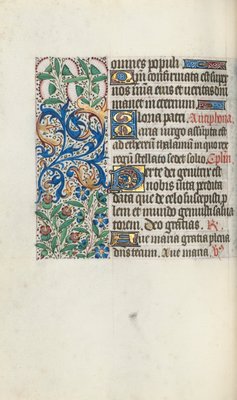 omnes populi
Qm confirmata est super
nos mīa eius et ueritas dnī
manet in eternum
Gloria patri. Antiphona.
Maria uirgo assūpta est
ad ethereū thalamū in quo rex
regū stellato sedet solio. Cplm
Per te dei genitrix est
nobis uita perdita
data que de celo suscepisti p
lem et mundo genuisti salua
torem. Deo gracias. R.
Aue maria gratia plena
dn̄s tecum. Aue maria. Vs